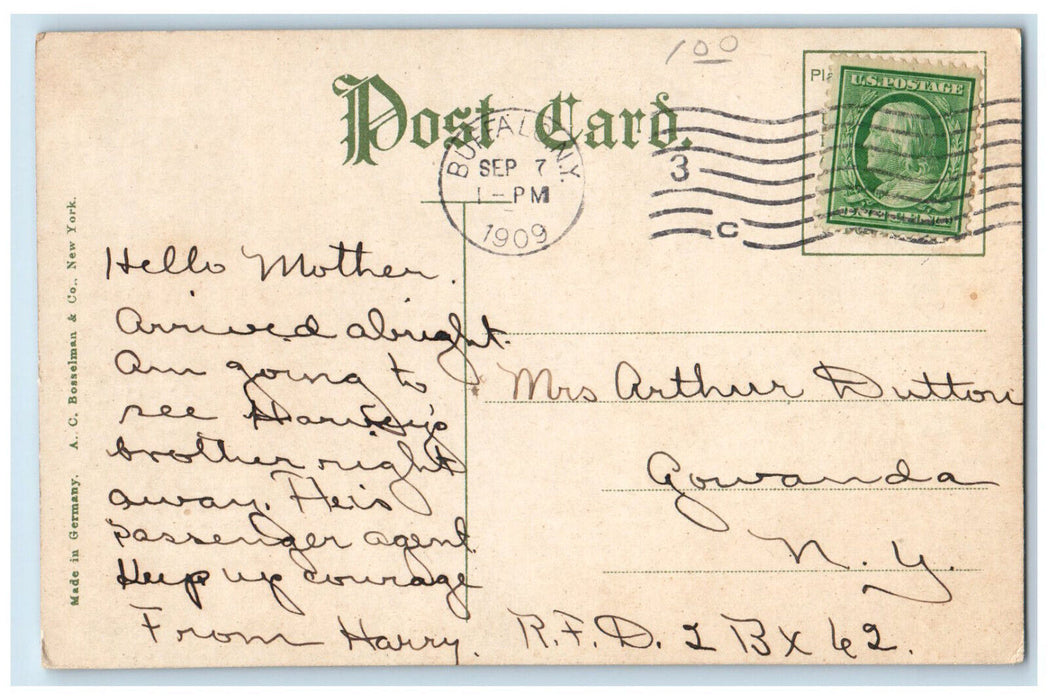 100
Post Card.
Pla
U.S. POSTAGE
BUFFALO, N.Y.
SEP 7
1 - PM
1909
3
C
Made in Germany. A. C. Bosselman & Co., New York.
Hello Mother.
Arrived alright.
Am going to
see
brother right
away. He is
passenger agent.
Keep up courage
From Harry.
Mrs Arthur Dutton
Gowanda
N. Y.
R.F.D. 2 Bx 62.